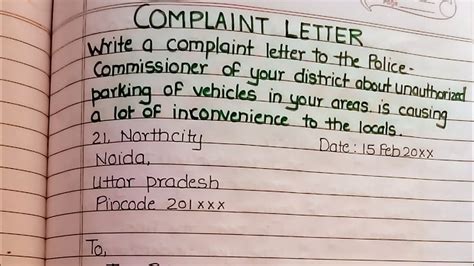 COMPLAINT LETTER
Write a complaint letter to the Police-
Commissioner of your district about unauthorized
parking of vehicles in your areas is causing
a lot of inconvenience to the locals.
21, Northcity Date: 15 Feb 20xx
Noida,
Uttar pradesh
Pincode 201xxx
To,